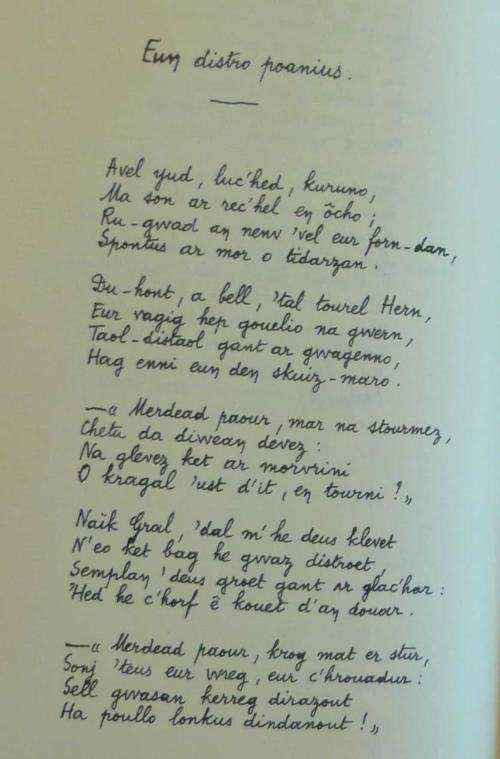 Eun distro poanius.
Avel yud, luc'hed, kuruno,
Ma son ar rec'hel en ôcho ;
Ru-gwad an nenv 'vel eur forn-dan,
Spontus ar mor o tidarzan.
Du-hont, a bell, 'tal tourel Hern,
Eur vagig hep gouelio na gwern,
Taol-distaol gant ar gwagenno,
Hag enni eun den skuiz-maro.
—« Merdead paour, mar na stourmez,
Chetu da diwean devez :
Na glevez ket ar morvrini
O kragal 'ust d'it, en tourni ! »
Naïk Gral, 'dal m' he deus klevet
N'eo ket bag he gwaz distroet,
Semplan 'deus groet gant ar glac'har :
'Hed he c'horf ê kouet d'an douar.
—« Merdead paour, krog mat er stur,
Sonj 'teus eur wreg, eur c'hrouadur :
Sell gwasan kerreg dirazout
Ha poullo lonkus dindanout ! »